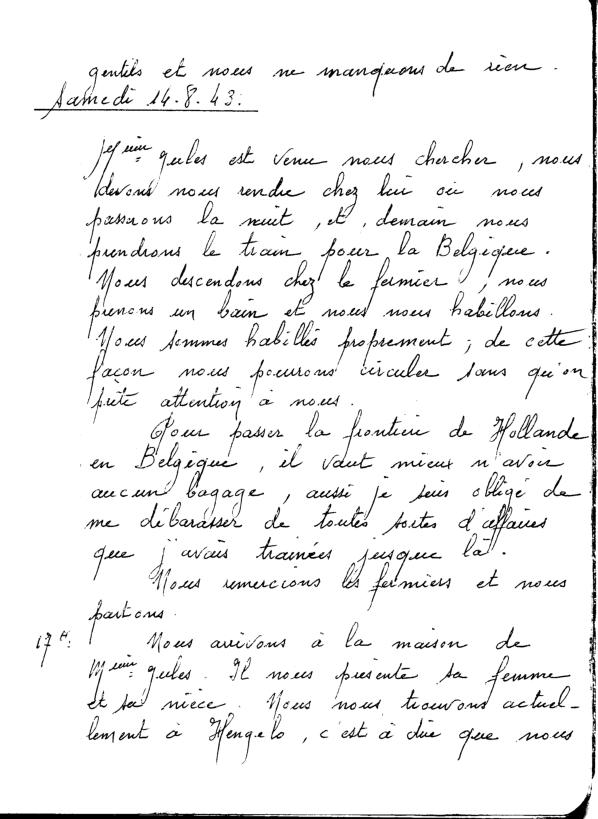 gentils et nous ne manquons de rien.
Samedi 14.8.43:
Mynheer Jules est venu nous chercher, nous
devons nous rendre chez lui où nous
passerons la nuit, et, demain nous
prendrons le train pour la Belgique.
Nous descendons chez le fermier, nous
prenons un bain et nous nous habillons.
Nous sommes habillés proprement; de cette
façon nous pourrons circuler sans qu'on
prête attention à nous.
Pour passer la frontière de Hollande
en Belgique, il vaut mieux n'avoir
aucun bagage, aussi je suis obligé de
me débarasser de toutes sortes d'affaires
que j'avais trainées jusque là.
Nous remercions les fermiers et nous
partons.
17H: Nous arrivons à la maison de
Jules. Il nous présente sa femme
et sa nièce. Nous nous trouvons actuel-
lement à Hengelo, c'est à dire que nous